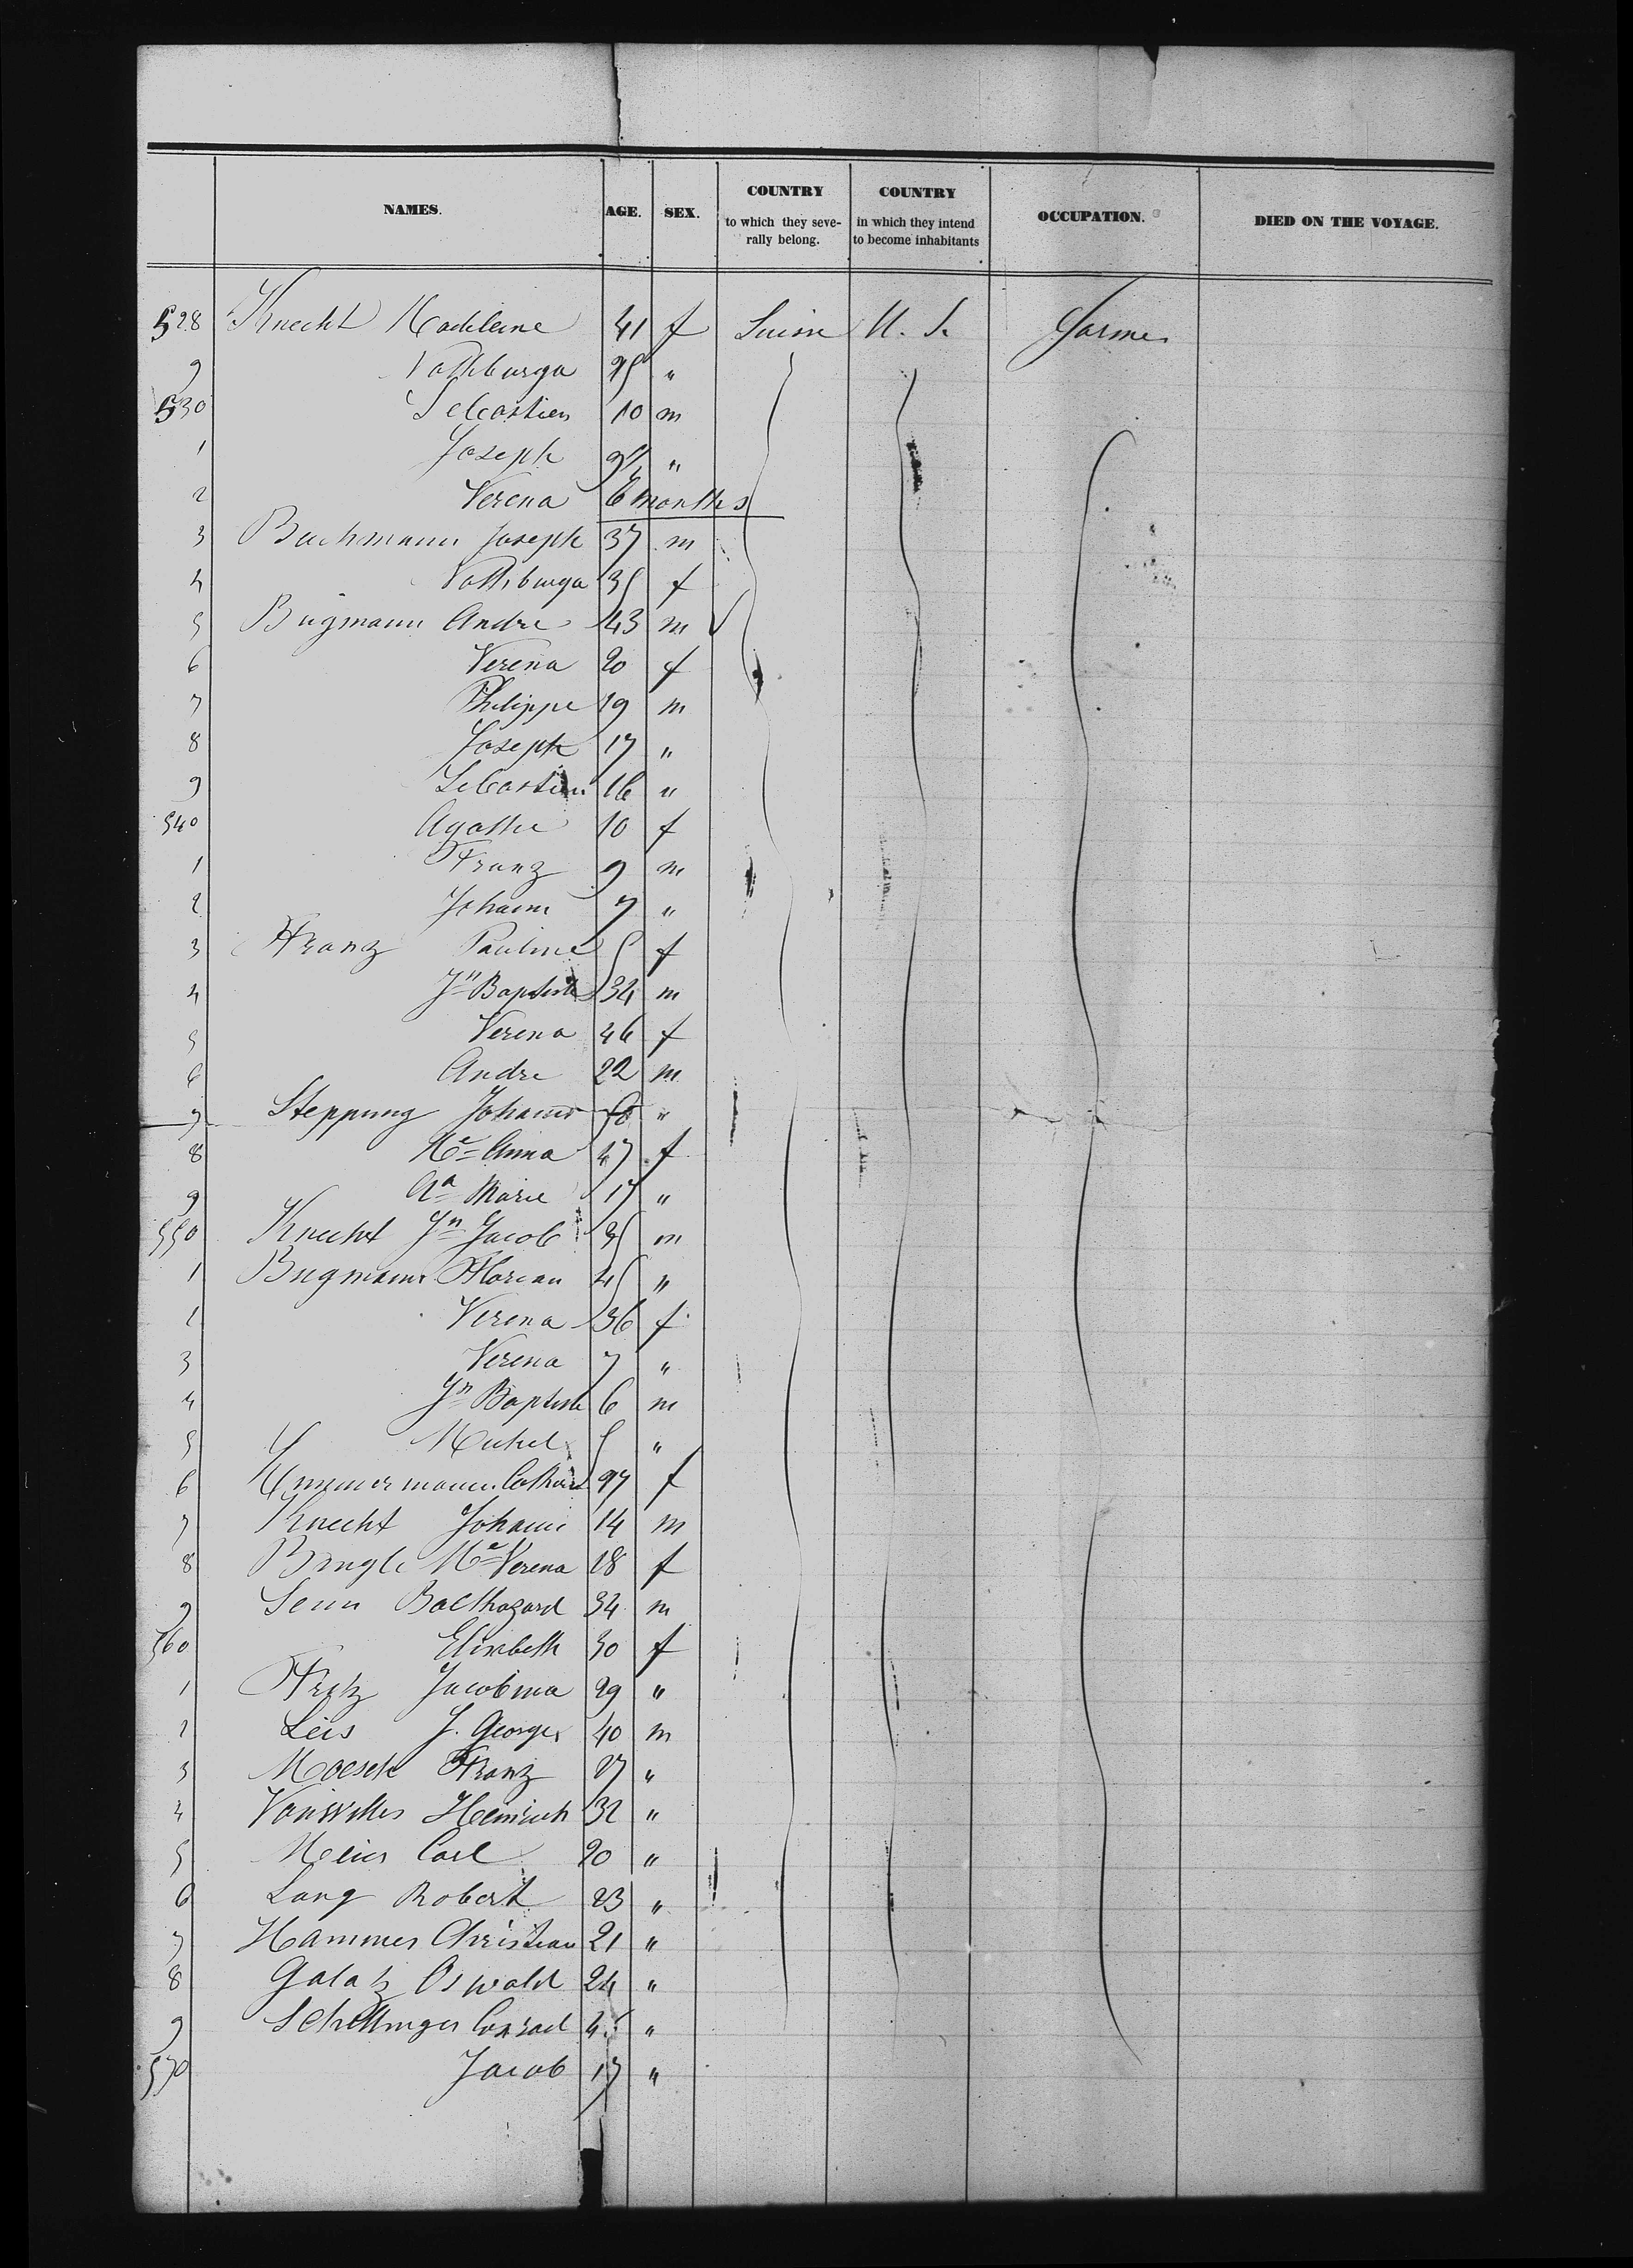 NAMES. AGE. SEX. COUNTRY to which they severally belong. COUNTRY in which they intend to become inhabitants OCCUPATION. DIED ON THE VOYAGE.
528 Knecht Madeleine 41 f Suisse U. S. Farmer
9 Vathburga 25 "
530 Sebastien 10 m
1 Joseph 9 "
2 Verena 6 months
3 Bachmann Joseph 37 m
4 Vathburga 35 f
5 Bugmann Andre 43 m
6 Verena 20 f
7 Philippe 19 m
8 Joseph 17 "
9 Sebastien 16 "
540 Agathe 10 f
1 Franz 9 m
2 Johann 7 "
3 Franz Pauline 5 f
4 Jn Baptiste 34 m
5 Verena 46 f
6 Andre 22 m
7 Steppung Johann "
8 Me Anna 47 f
9 Aa Marie 17 "
550 Knecht Jn Jacob 35 m
1 Bugmann Florian 45 "
2 Verena 36 f
3 Verena 7 "
4 Jn Baptiste 6 m
5 Michel 5 "
6 97 f
7 Knecht Johann 14 m
8 Me Verena 18 f
9 Senn Balthazard 34 m
560 Elisabeth 30 f
1 Fritz Jacobina 29 "
2 Leis J. Georges 40 m
3 Moesch Franz 27 "
4 Heinrich 32 "
5 Meier Carl 20 "
6 Lang Robert 23 "
7 Hammer Christian 21 "
8 Galatz Oswald 24 "
9 Schellinger Conrad 45 "
570 Jacob 17 "